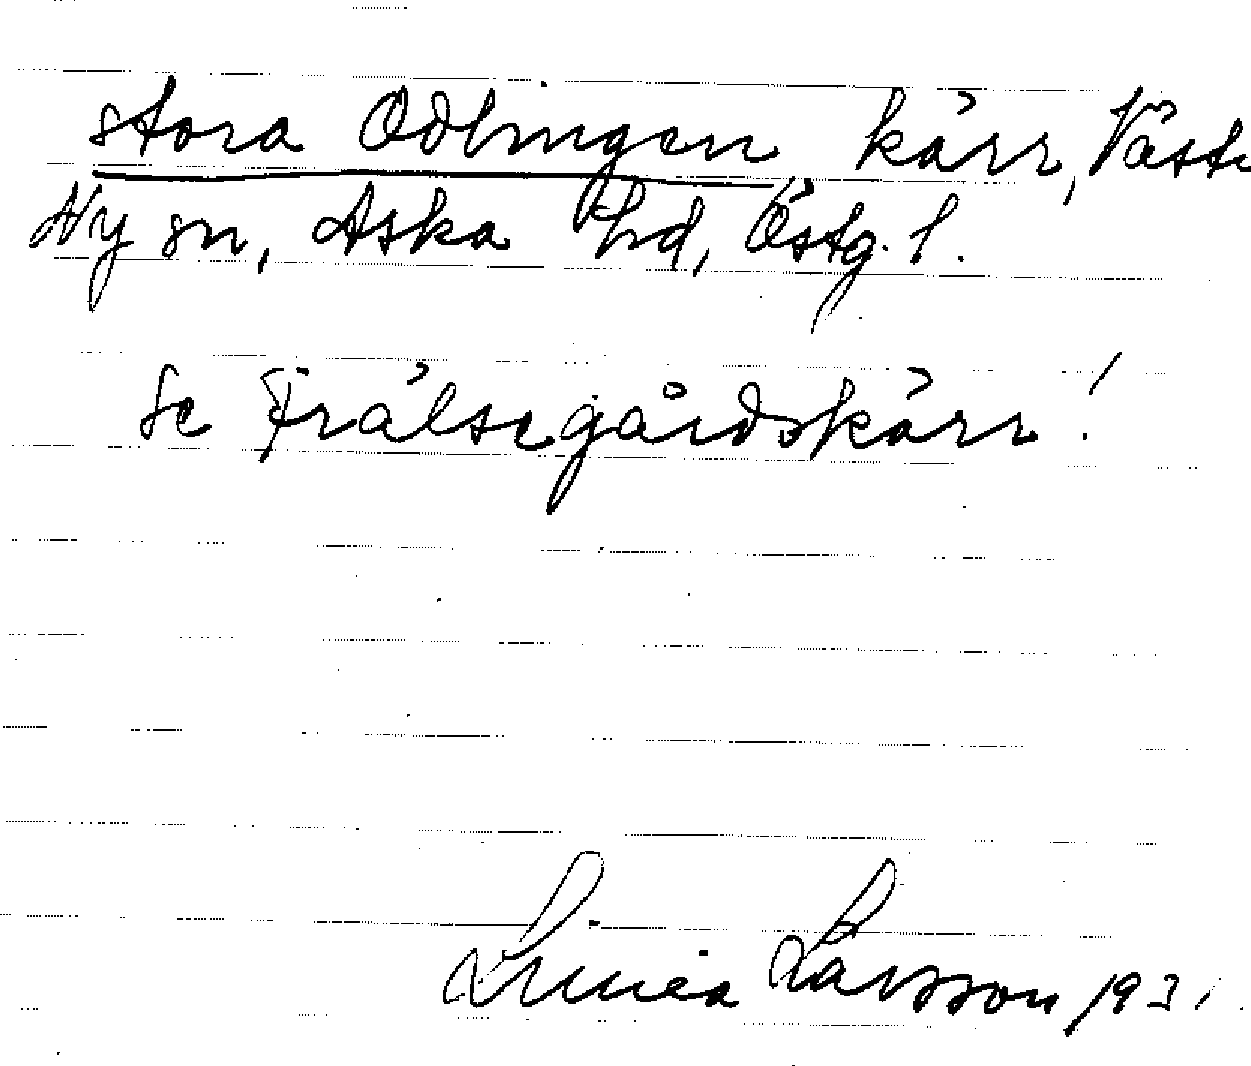 stora Odlingen, kärr, Väste
Ny sn, Aska hd, Östg. l.
Se Frälsegårdskärr!
Linnéa Larsson 1931.